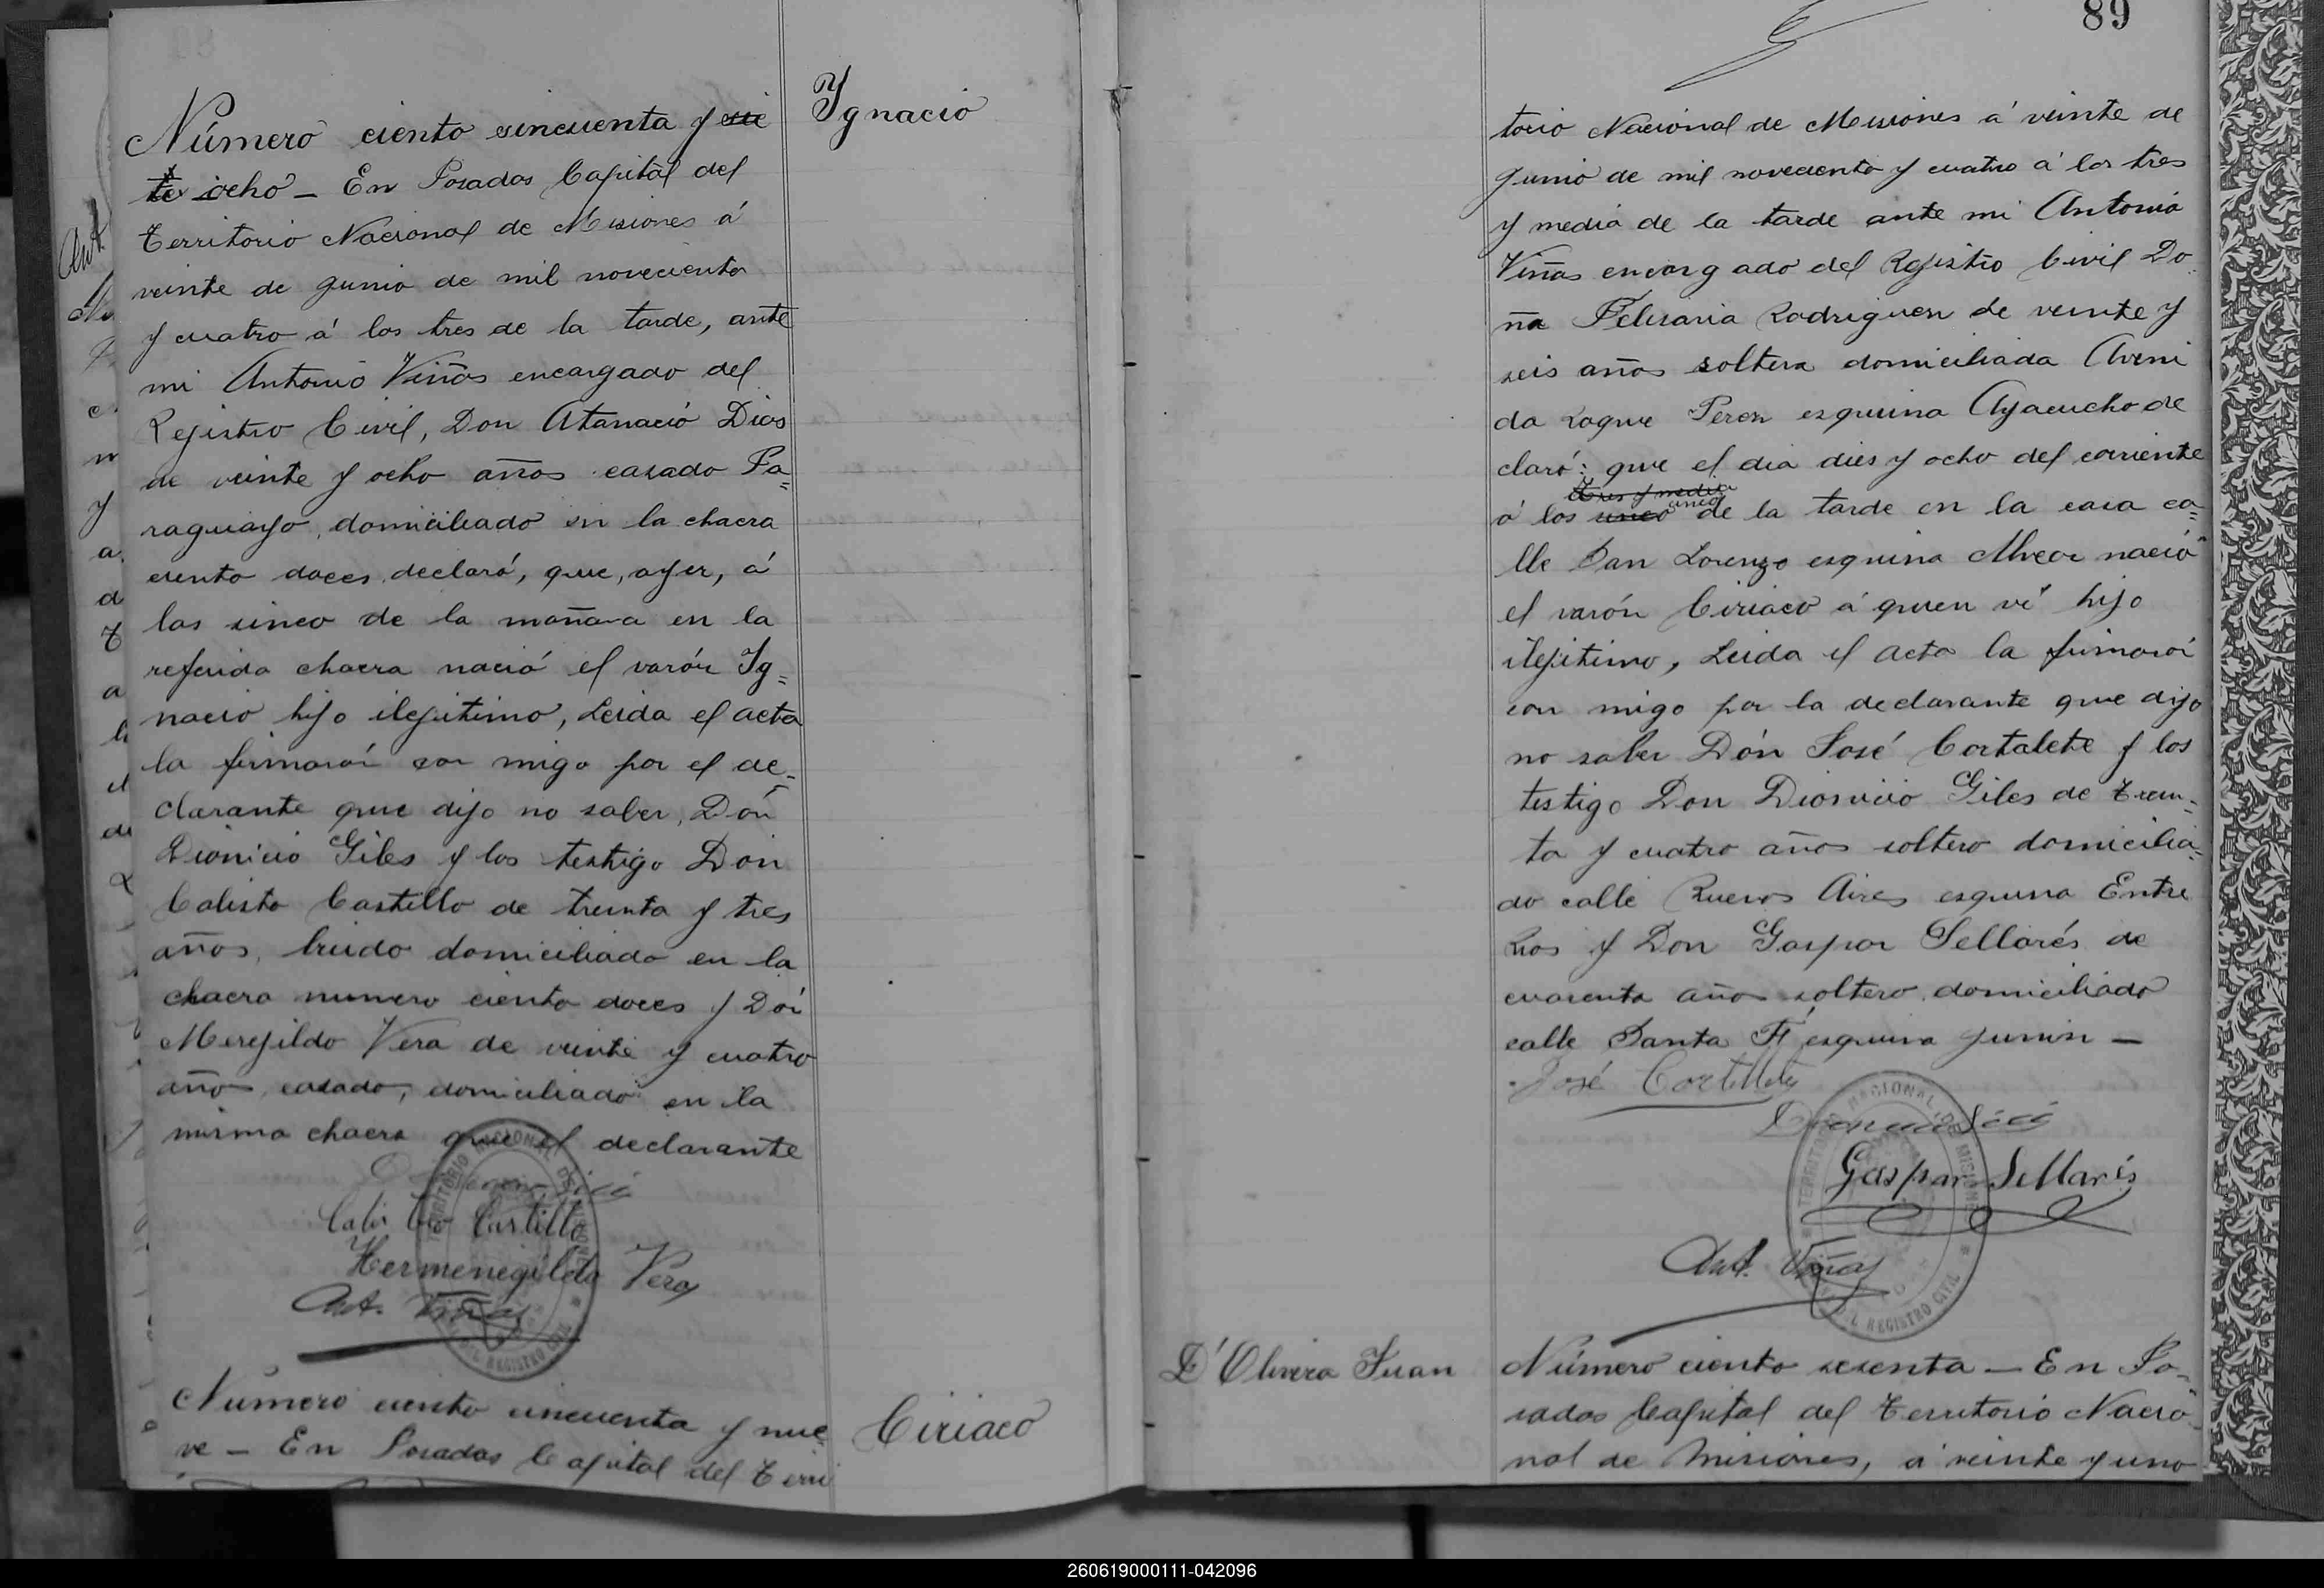 Ygnacio
Número ciento cincuenta y sie
te ocho — En Posadas Capital del
Territorio Nacional de Misiones á
veinte de junio de mil novecientos
y cuatro á las tres de la tarde, ante
mi Antonio Viñas encargado del
Rejistro Civil, Don Atanacio Dios
de veinte y ocho años casado Pa=
raguayo, domiciliado en la chacra
ciento doces, declaró, que, ayer, á
las sinco de la mañana en la
referida chacra nació el varón Ig=
nacio hijo ilejitimo, Leida el acta
la firmarón con migo por el de=
clarante que dijo no saber, Dón
Dionicio Giles y los testigo Dón
Calisto Castillo de treinta y tres
años, viudo domiciliado en la
chacra numero ciento doces y Dón
Merejildo Vera de veinte y cuatro
años, casado, domiciliado en la
misma chacra que el declarante
Calisto Castillo
Hermenegildo Vera
Ant. Viñas
Ciriaco
Número ciento cincuenta y nue
ve — En Posadas Capital del Terri
89
torio Nacional de Misiones á veinte de
junio de mil novecento y cuatro á las tres
y media de la tarde ante mi Antonio
Viñas encargado del Rejistro Civil Do
ña Feliciana Rodriguez de veinte y
seis años soltera domiciliada Aveni
da Roque Perez esquina Ayacucho de
claró: que el dia dies y ocho del corriente
tres y media
cinco
á las cinco de la tarde en la casa ca=
lle San Lorenzo esquina Alvear nació
el varón Ciriaco á quien ví hijo
ilejitimo, Leida el acta la firmarón
con migo por la declarante que dijo
no saber Dón José Cortalete y los
testigo Don Dionicio Giles de trein=
ta y cuatro años soltero domicilia=
do calle Buenos Aires esquina Entre
Rios y Don Gaspar Sellarés de
cuarenta años soltero domiciliado
calle Santa Fé esquina Junin —
José Cortalete
Gaspar Sellarés
Ant. Viñas
TERRITORIO NACIONAL DE MISIONES
REGISTRO CIVIL
D'Olivera Juan
Número ciento sesenta — En Po=
sadas Capital del Territorio Nacio
nal de Misiones, á veinte y uno
260619000111-042096